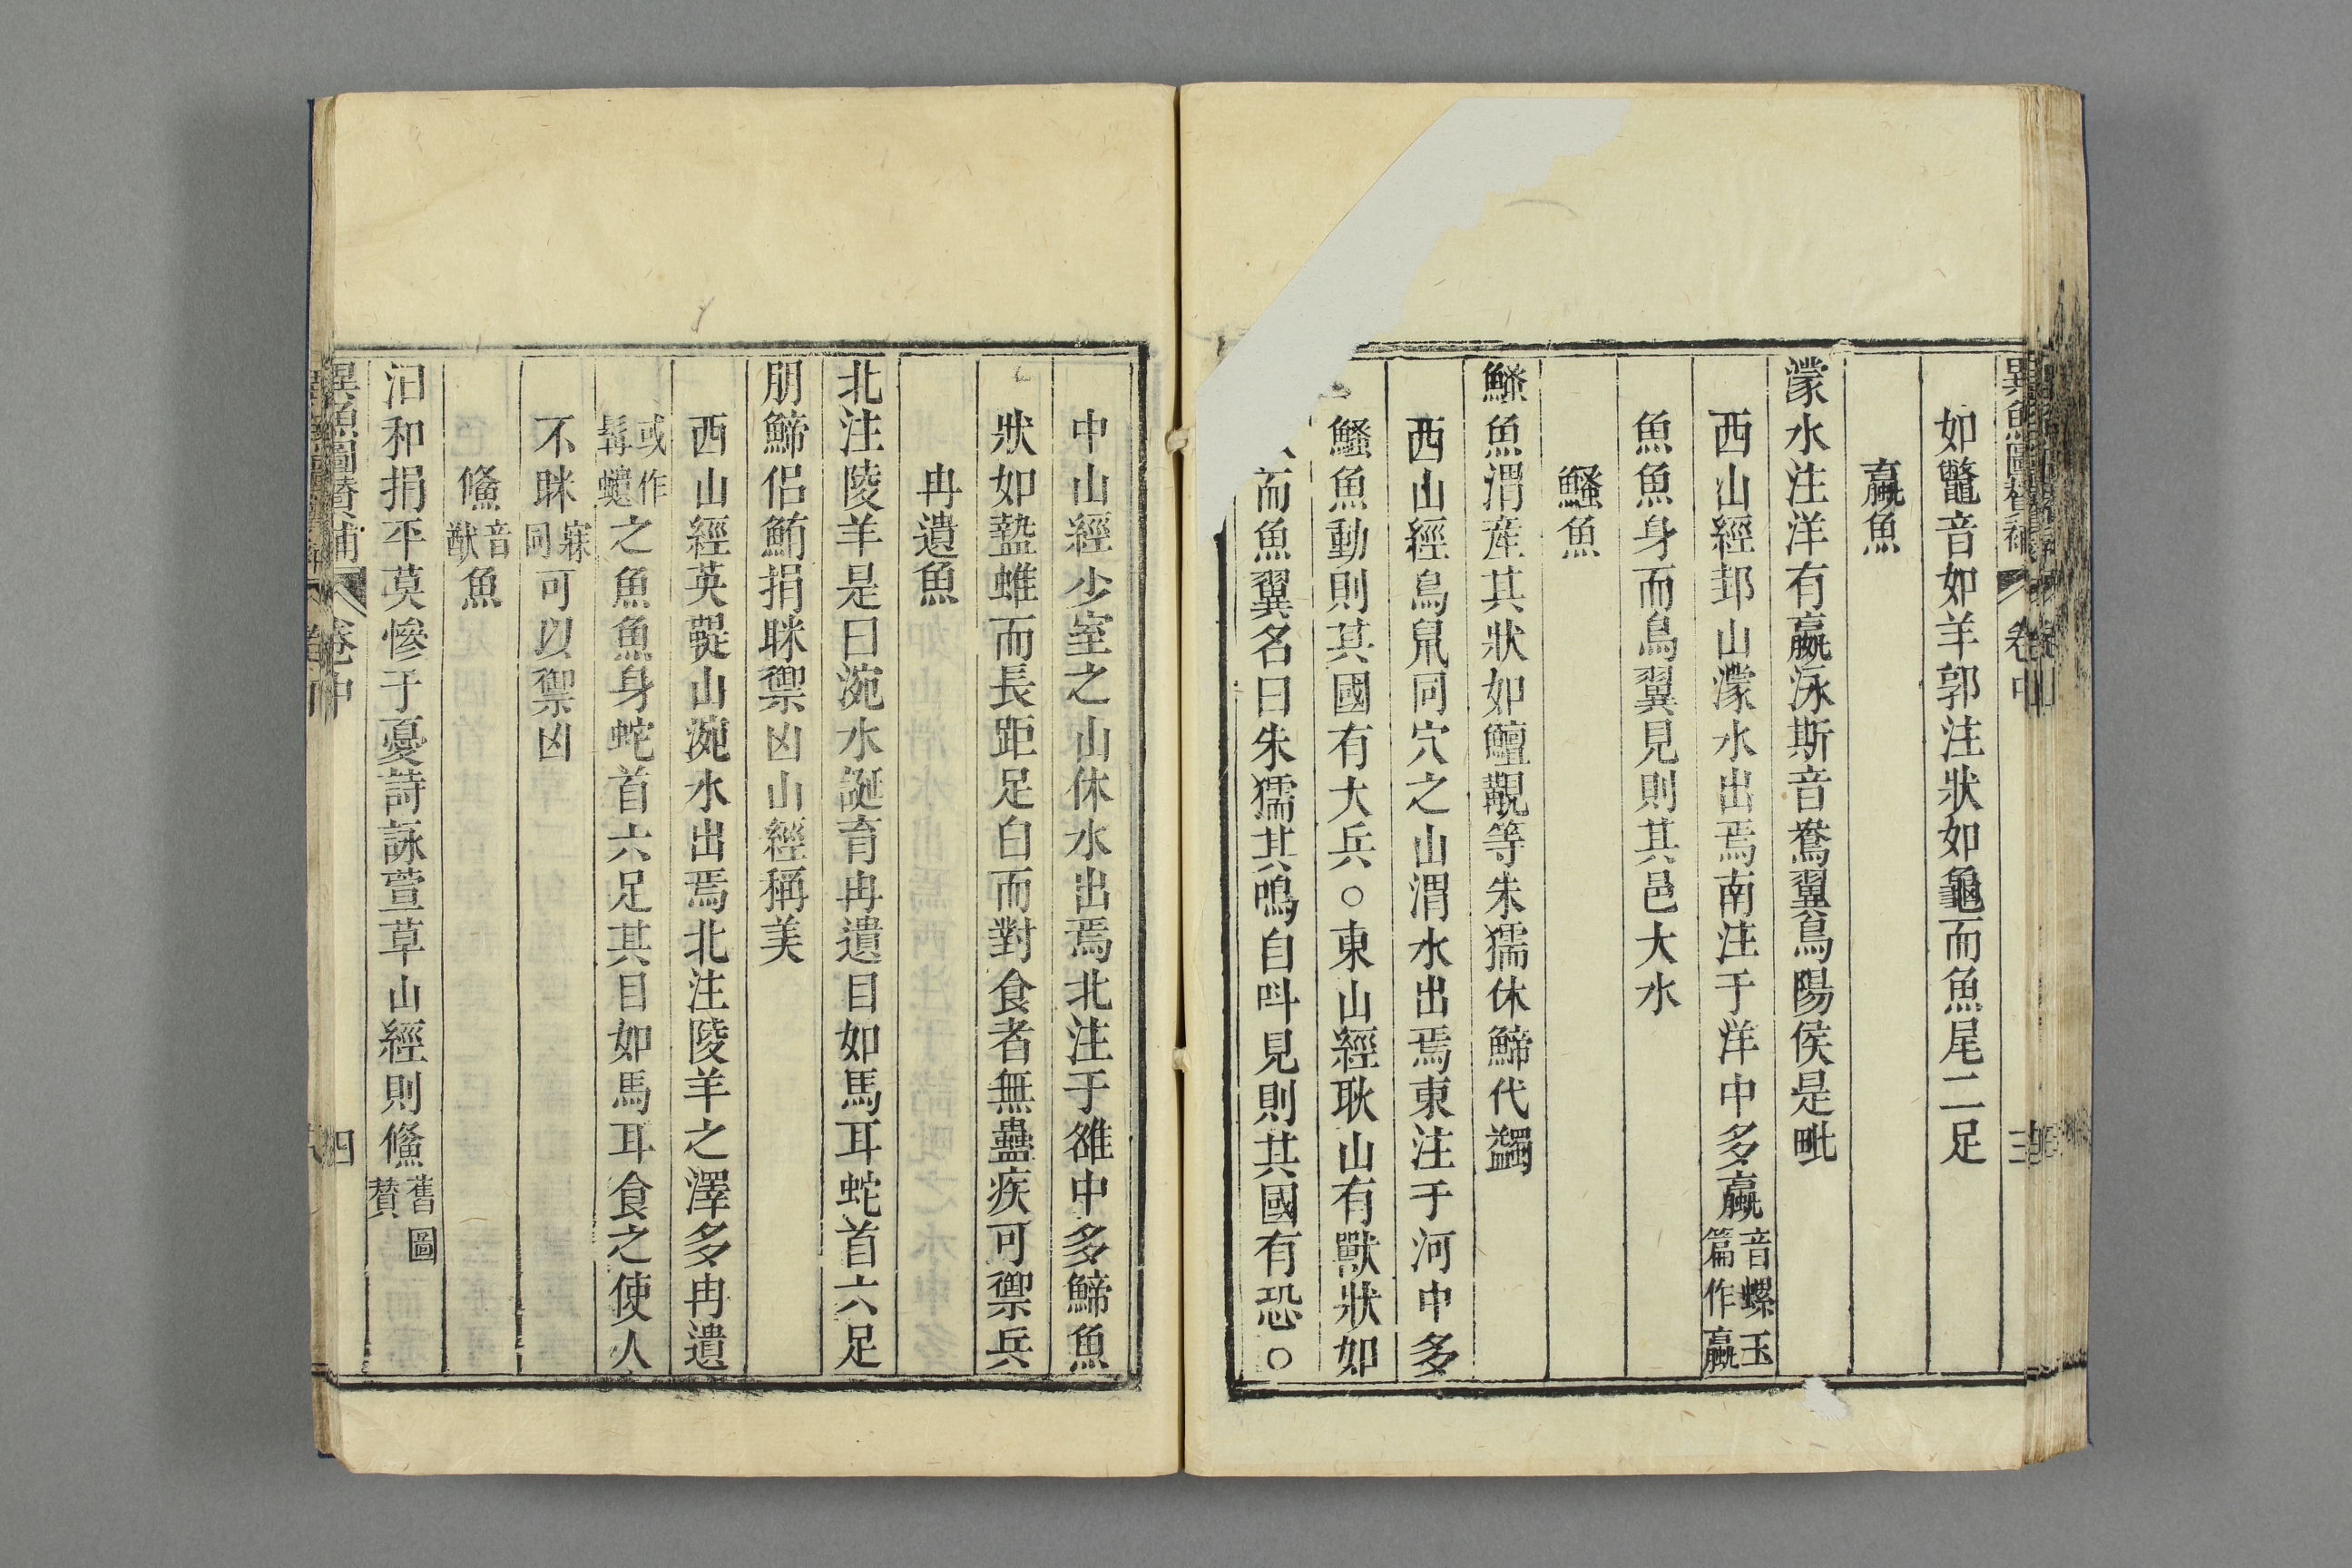 異魚圖贊補 卷中 三
如鼈音如羊郭注狀如龜而魚尾二足
蠃魚
濛水注洋有蠃泳斯音鴦翼鳥陽侯是毗
西山經邽山濛水出焉南注于洋中多蠃音螺玉篇作蠃
魚魚身而鳥翼見則其邑大水
鰠魚
鰠魚渭產其狀如鱣觀等朱獳休鯑代蠲
西山經鳥鼠同穴之山渭水出焉東注于河中多
鰠魚動則其國有大兵○東山經耿山有獸狀如
而魚翼名曰朱獳其鳴自呌見則其國有恐○
中山經少室之山休水出焉北注于雒中多鯑魚
狀如盩蜼而長距足白而對食者無蠱疾可禦兵
冉遺魚
北注陵羊是曰涴水誕育冉遺目如馬耳蛇首六足
朋鯑侶鮪捐眯禦凶山經稱美
西山經英鞮山涴水出焉北注陵羊之澤多冉遺
或作髯蠵之魚魚身蛇首六足其目如馬耳食之使人
不眯寐同可以禦凶
鯈音猷魚
汨和捐平莫慘于憂詩詠萱草山經則鯈舊圖贊
異魚圖贊補 卷中 四